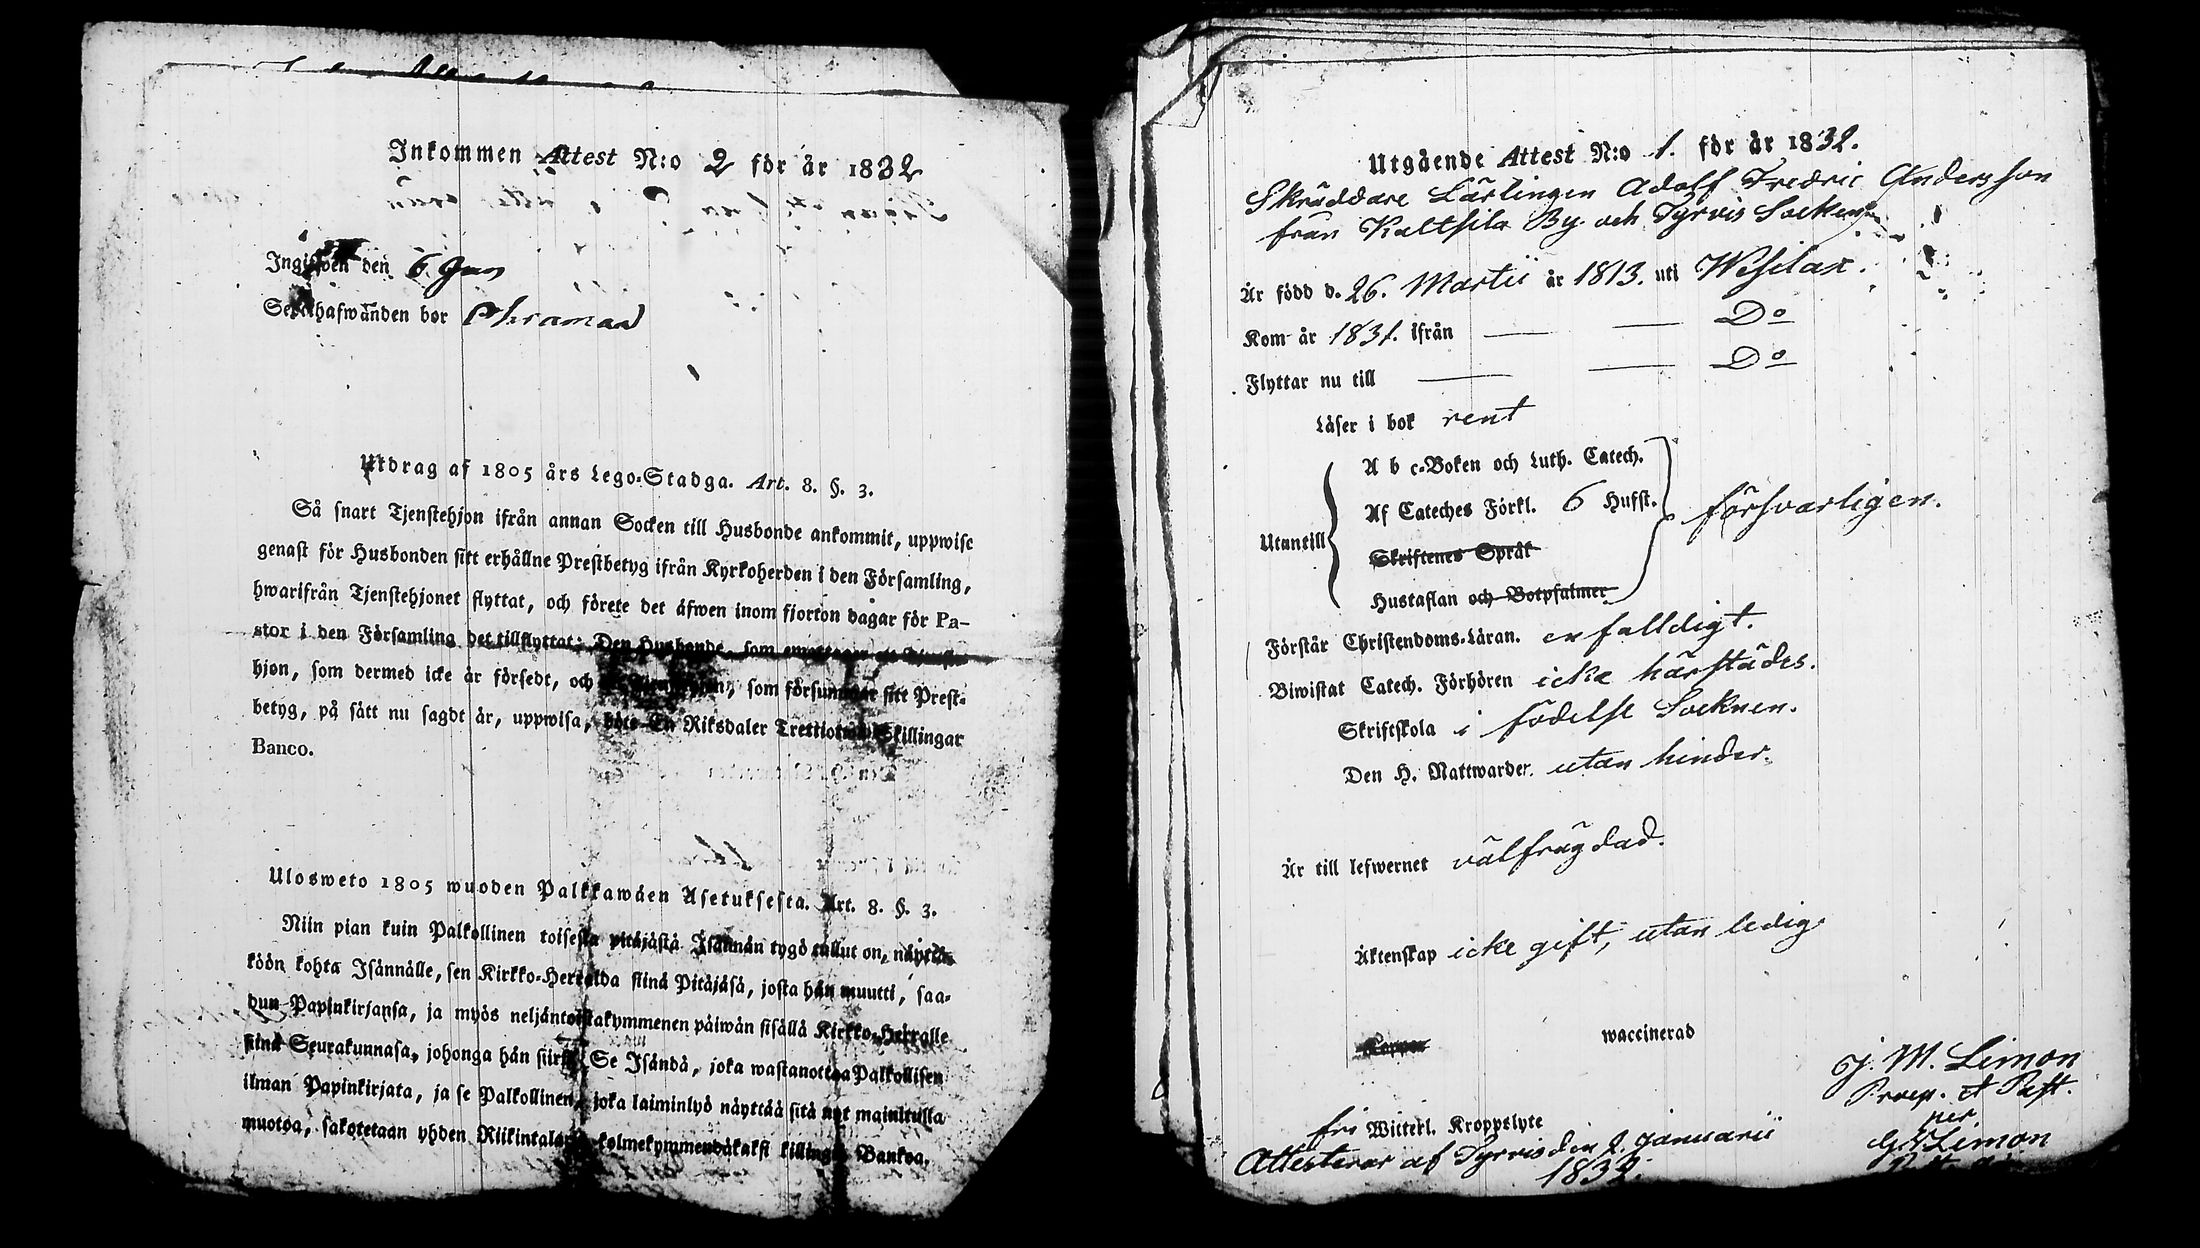 Inkommen Attest N:o 2 för år 1832
Ingifwen den 6 Jan
Sedelhafwanden bor
Utdrag af 1805 års Lego-Stadga. Art. 8. §. 3.
Så snart Tjenstehjon ifrån annan Socken till Husbonde ankommit, uppwise
genast för Husbonden sitt erhållne Prestbetyg ifrån Kyrkoherden i den Församling,
hwarifrån Tjenstehjonet flyttat, och förete det äfwen inom fjorton dagar för Pa-
stor i den Församling det tillflyttat; Den Husbonde, som emottager ett Tjenste-
hjon, som dermed icke är försedt, och som försummar sitt Prest-
betyg, på sätt nu sagdt är, uppwisa, böte En Riksdaler Trettiotwå Skillingar
Banco.
Ulosweto 1805 wuoden Palkkawäen Asetuksesta. Art. 8. §. 3.
Niin pian kuin Palkollinen toisesta pitäjästä Isännän tygö tullut on, näyttä-
köön kohta Isännälle, sen Kirkko-Herralda siinä Pitäjäsä, josta hän muutti, saa-
dun Papinkirjansa, ja myös neljäntoistakymmenen päiwän sisällä Kirkko-Herralle
siinä Seurakunnasa, johonga hän siirsi. Se Isändä, joka wastanottaa Palkollisen
ilman Papinkirjata, ja se Palkollinen, joka laiminlyö näyttää sitä nyt mainitulla
muotoa, sakotetaan yhden Riikintalarin kolmekymmendäkaksi killingin Bankoa.
Utgående Attest N:o 1. för år 1832.
Skräddare Lärlingen Adolf Fredric Andersson
från Kaltsila By och Tyrvis Socken
Är född d. 26. Martii år 1813. uti Wesilax.
Kom år 1831. ifrån — — Do
Flyttar nu till — — Do
Läser i bok rent
A b c-Boken och Luth. Catech.
Af Cateches Förkl. 6 Hufst.
Utantill försvarligen.
Skriftenes Språk
Hustaflan och Botpsalmer
Förstår Christendoms-Läran. enfalldigt.
Biwistat Catech. Förhören icke härstädes.
Skriftskola i födelse Socknen.
Den H. Nattwarden utan hinder.
Är till lefwernet välfrägdad.
Äktenskap icke gift, utan ledig
Koppor waccinerad
J. M. Limon
Præp. et Past.
per
G. Limon
fri Witterl. Kroppslyte
Attesterar af Tyrvis den 2. Januarii
1832.